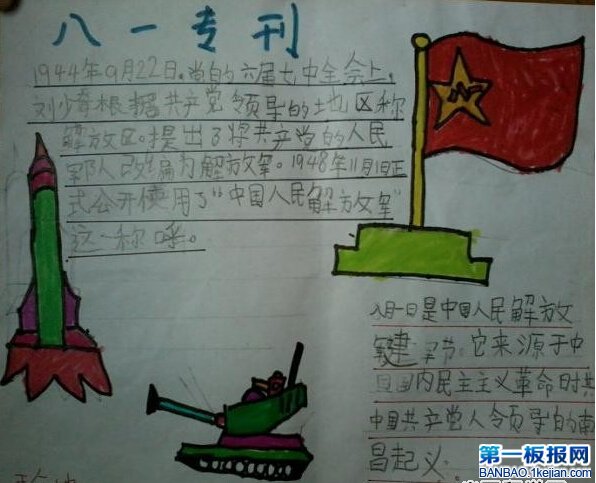 八一专刊
1944年9月22日。党的六届七中全会上,
刘少奇根据共产党领导的地区称
解放区。提出了将共产党的人民
军队改编为解放军。1948年11月1日正
式公开使用了"中国人民解放军"
这一称呼。
八月一日是中国人民解放
建军节。它来源于中
国国内民主主义革命时共
中国共产党人领导的南
昌起义.
第一板报网
BANBAO.1kejian.com